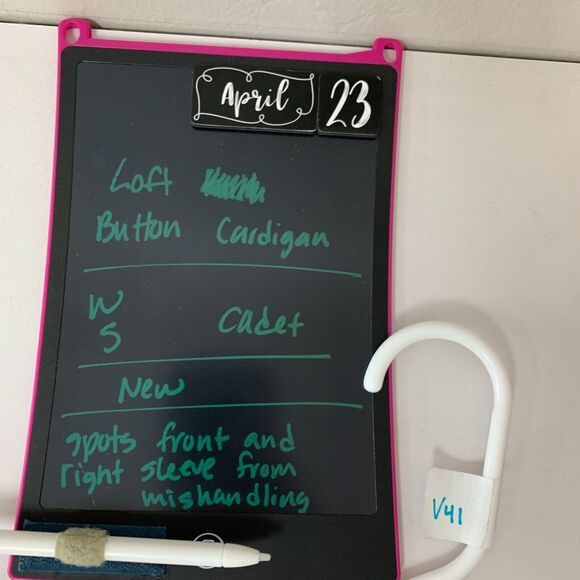 April 23
Loft
Button Cardigan
W Cadet
S
New
spots front and
right sleeve from
mishandling
V41